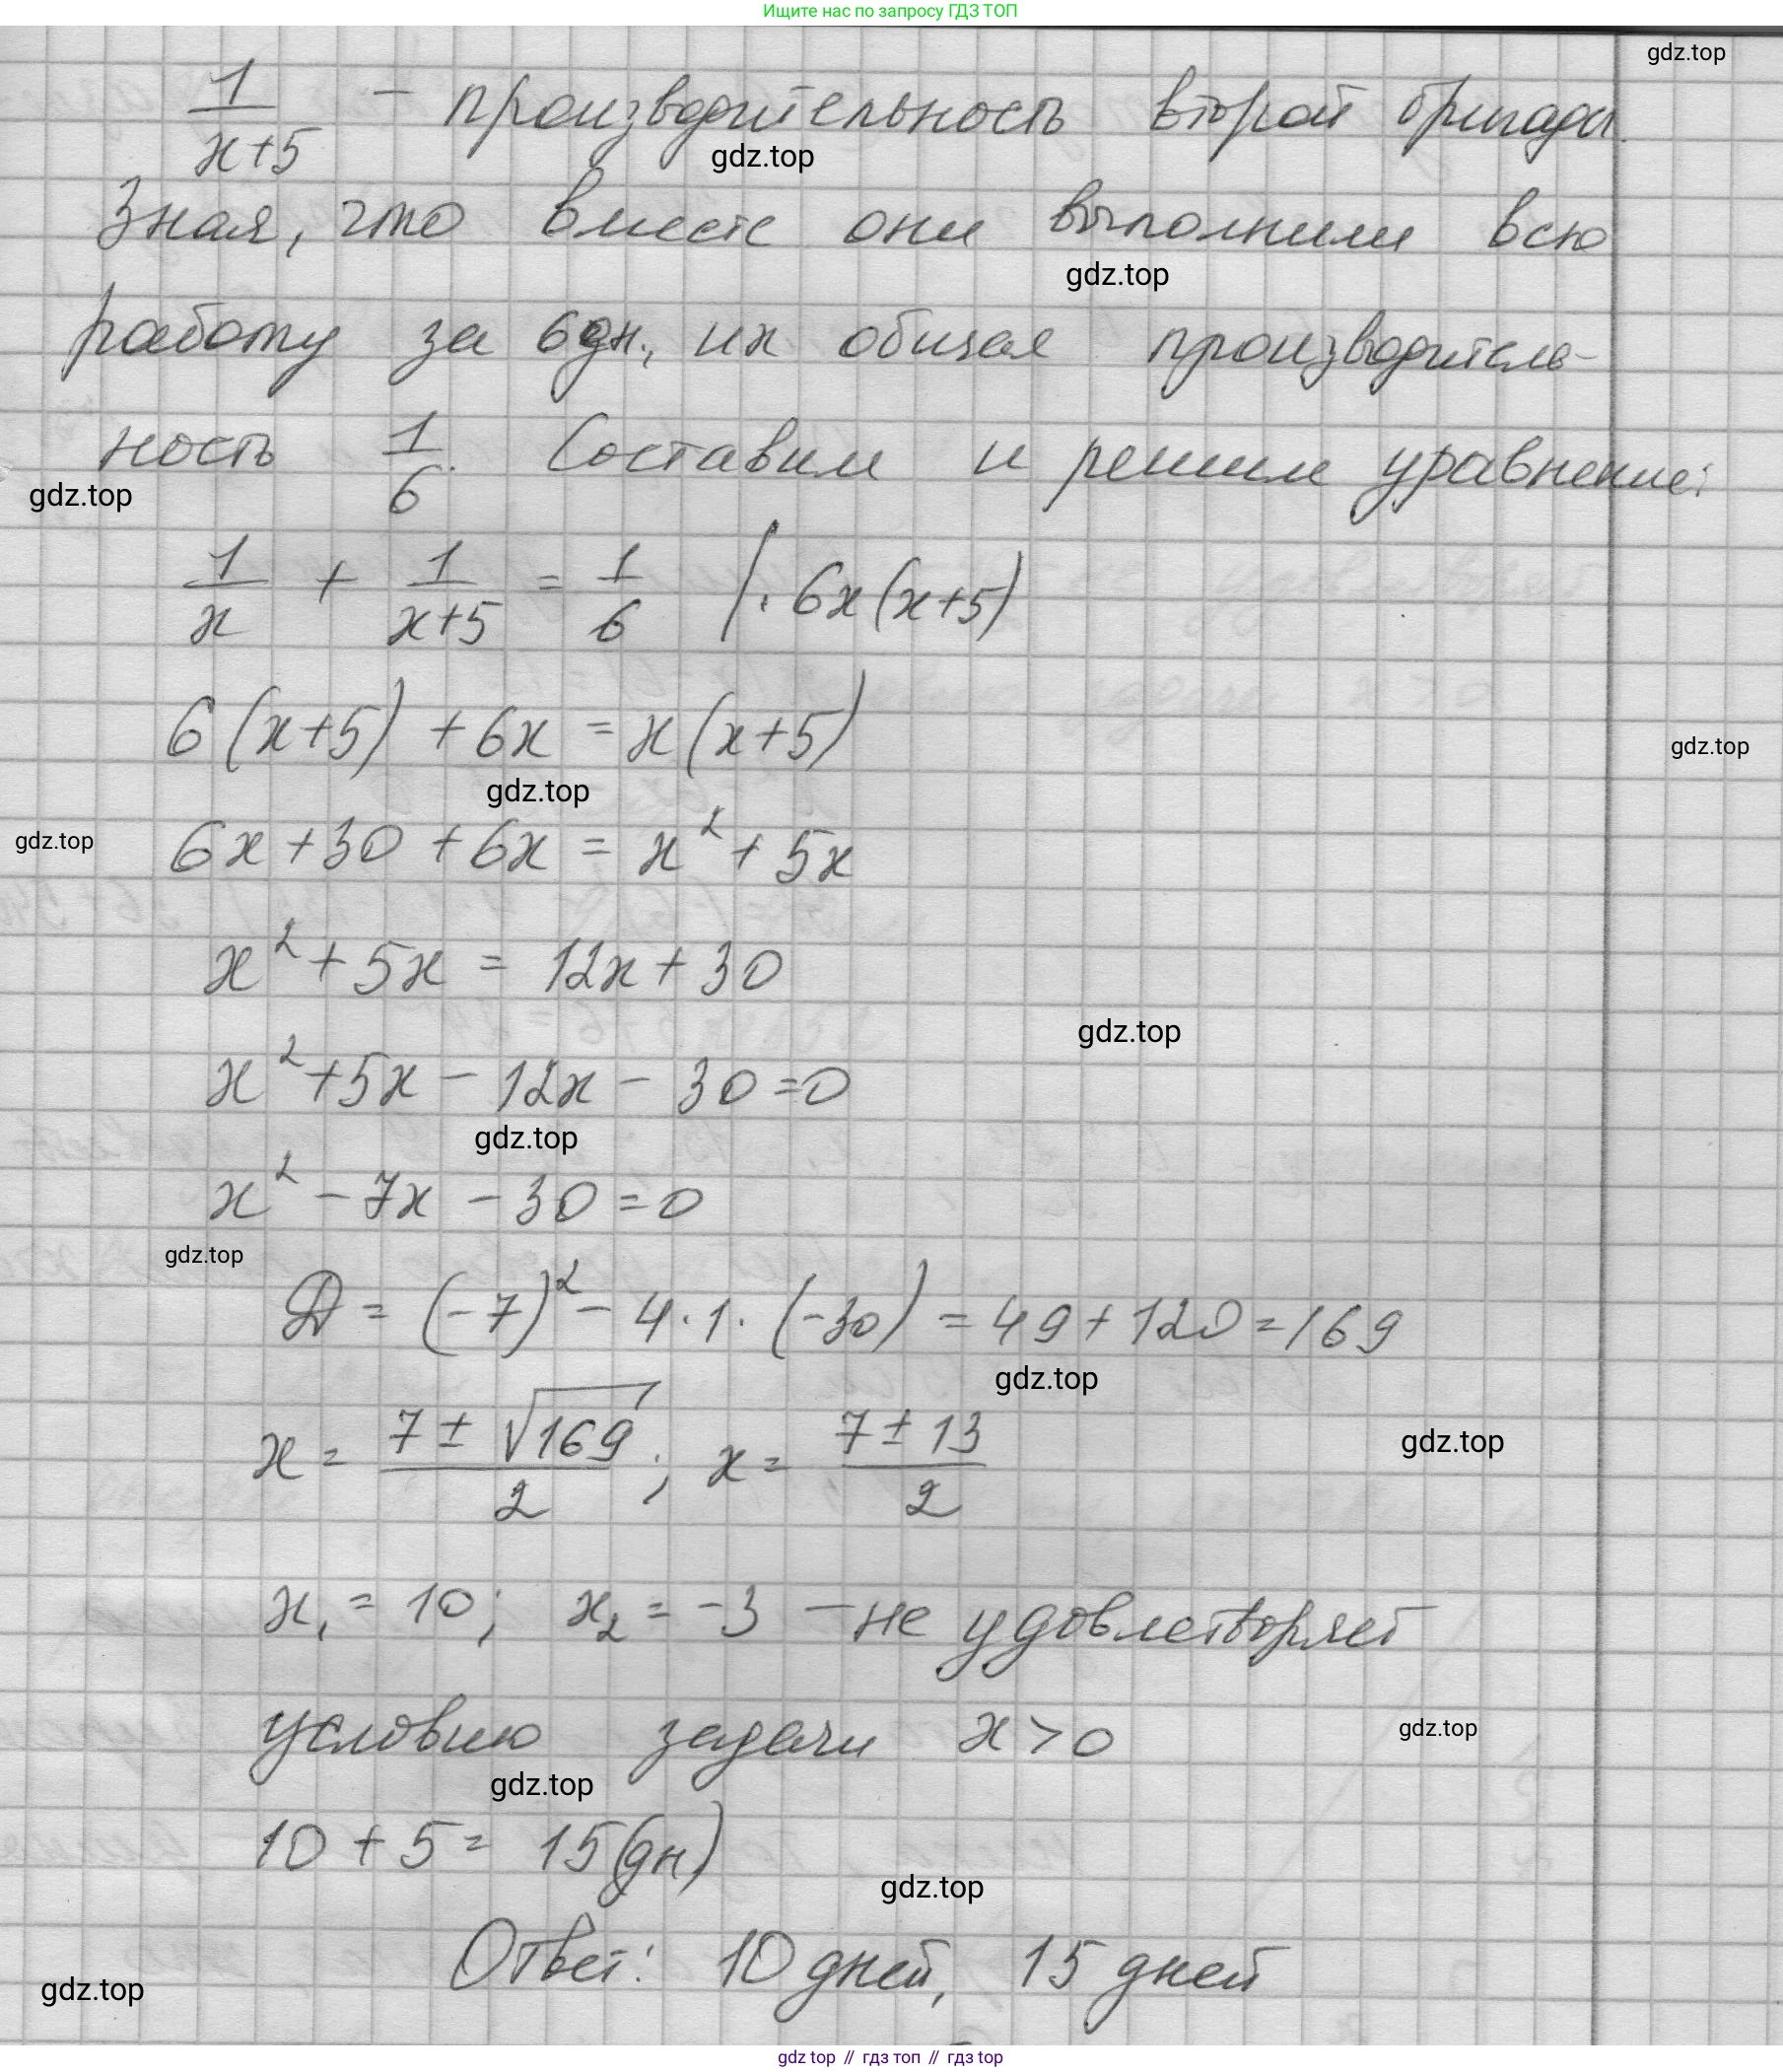 Ищите нас по запросу ГДЗ ТОП
gdz.top
1/(x+5) – производительность второй бригады.
gdz.top
Зная, что вместе они выполнили всю
gdz.top
работу за 6 дн., их общая производитель-
ность 1/6. Составим и решим уравнение:
gdz.top
1/x + 1/(x+5) = 1/6 |· 6x(x+5)
6(x+5) + 6x = x(x+5)
gdz.top
gdz.top
gdz.top
6x + 30 + 6x = x² + 5x
x² + 5x = 12x + 30
gdz.top
x² + 5x – 12x – 30 = 0
gdz.top
x² – 7x – 30 = 0
gdz.top
D = (–7)² – 4·1·(–30) = 49 + 120 = 169
gdz.top
x = (7 ± √169)/2; x = (7 ± 13)/2
gdz.top
x₁ = 10; x₂ = –3 – не удовлетворяет
условию задачи x > 0
gdz.top
gdz.top
10 + 5 = 15 (дн)
gdz.top
Ответ: 10 дней, 15 дней
gdz.top
gdz top // гдз топ // гдз top